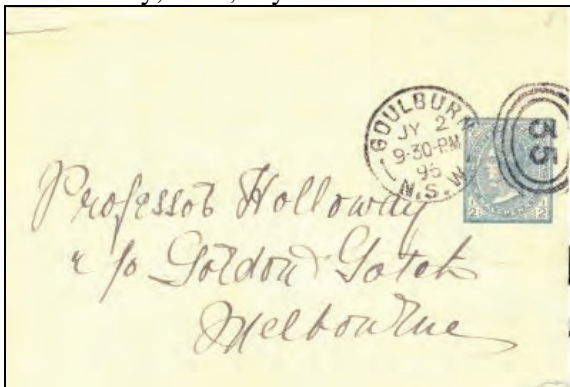 GOULBURN
JY 2
9-30-PM
95
N.S.W.
35
2 2
Professor Holloway
c/o Gordon & Gotch
Melbourne